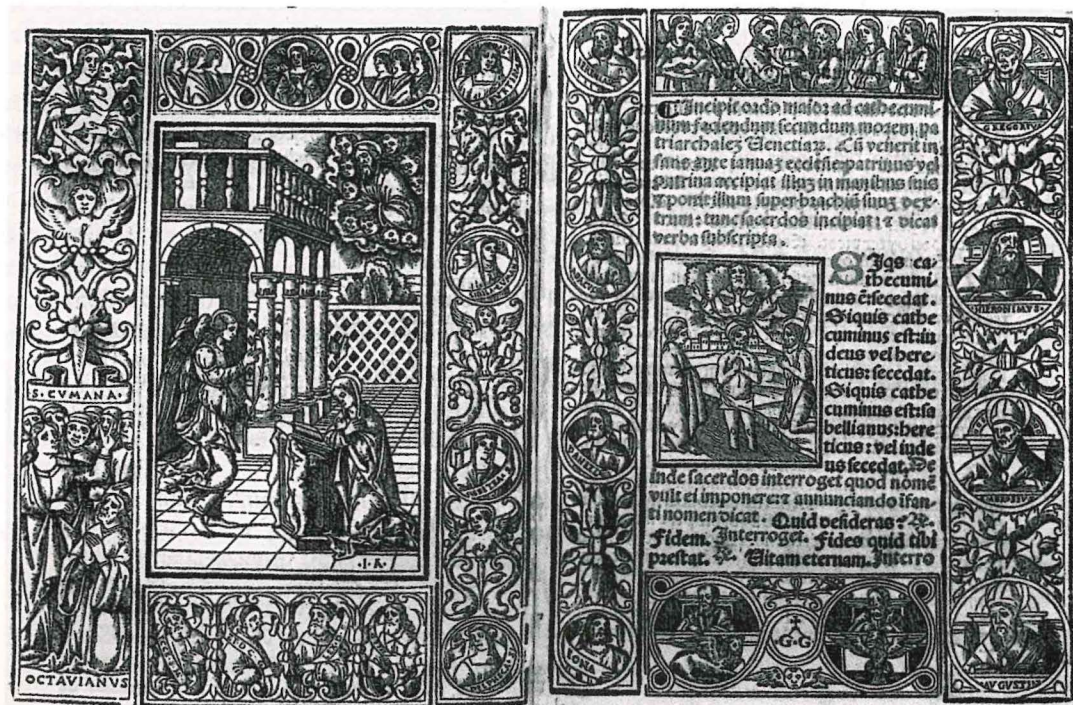 S·CVMANA·
OCTAVIANVS
·I·A·
¶Incipit ordo maior ad cathecumi-
num faciendum secundum morem pa
triarchalez Venetiaꝝ. Cū venerit in
fans ante ianuaz ecclesie: patrinus vel
patrina accipiat illuz in manibus suis
⁊ ponit illum super brachiū suuz dex-
trum: tunc sacerdos incipiat: ⁊ dicat
verba subscripta.
SIqs ca-
thecumi
nus ē: secedat.
Siquis cathe
cuminus est: iu
deus vel here-
ticus: secedat.
Siquis cathe
cuminus est: sa
bellianus: here
ticus: vel iude
us secedat. De
inde sacerdos interroget quod nomē
vult ei imponere: ⁊ annunciando īfan-
ti nomen dicat. Quid desideras? ℞.
Fidem. Interroget. Fides quid tibi
prestat. ℞. Vitam eternam. Interro
G·G
DANIEL
IONA
GREGORIV
HIERONIMVS·
AVGVSTI